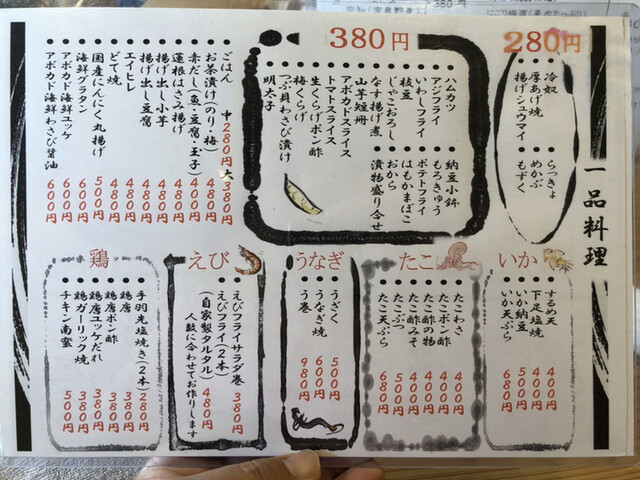 一品料理
280円
冷奴
厚あげ焼
揚げシュウマイ
らっきょ
めかぶ
もずく
380円
ハムカツ
アジフライ
いわしフライ
枝豆
じゃこおろし
なす揚げ煮
山芋短冊
アボカドスライス
トマトスライス
生くらげポン酢
梅くらげ
つぶ貝わさび漬け
明太子
納豆小鉢
もろきゅう
ポテトフライ
はもかまぼこ
おから
漬物盛り合せ
ごはん 中280円 大380円
お茶漬け(のり・梅) 400円
赤だし(魚・豆腐・玉子) 400円
蓮根はさみ揚げ 480円
揚げ出し小芋 480円
揚げ出し豆腐 480円
エイヒレ 480円
どて焼 480円
国産にんにく丸揚げ 500円
海鮮グラタン 600円
アボカド海鮮ユッケ 600円
アボカド海鮮わさび醤油 600円
いか
するめ天 400円
下足塩焼 400円
いか納豆 400円
いか天ぷら 680円
たこ
たこわさ 400円
たこポン酢 400円
たこ酢の物 400円
たこ酢みそ 400円
たこぶつ 500円
たこ天ぷら 680円
うなぎ
うざく 500円
うなぎ焼 980円
う巻 900円
えび
えびフライサラダ巻 380円
えびフライ(2本) 480円
(自家製タルタル)
人数に合わせてお作りします
鶏
手羽先塩焼き(2本) 280円
鶏唐 380円
鶏唐ポン酢 380円
鶏唐ユッケだれ 380円
鶏ガーリック焼 380円
チキン南蛮 500円